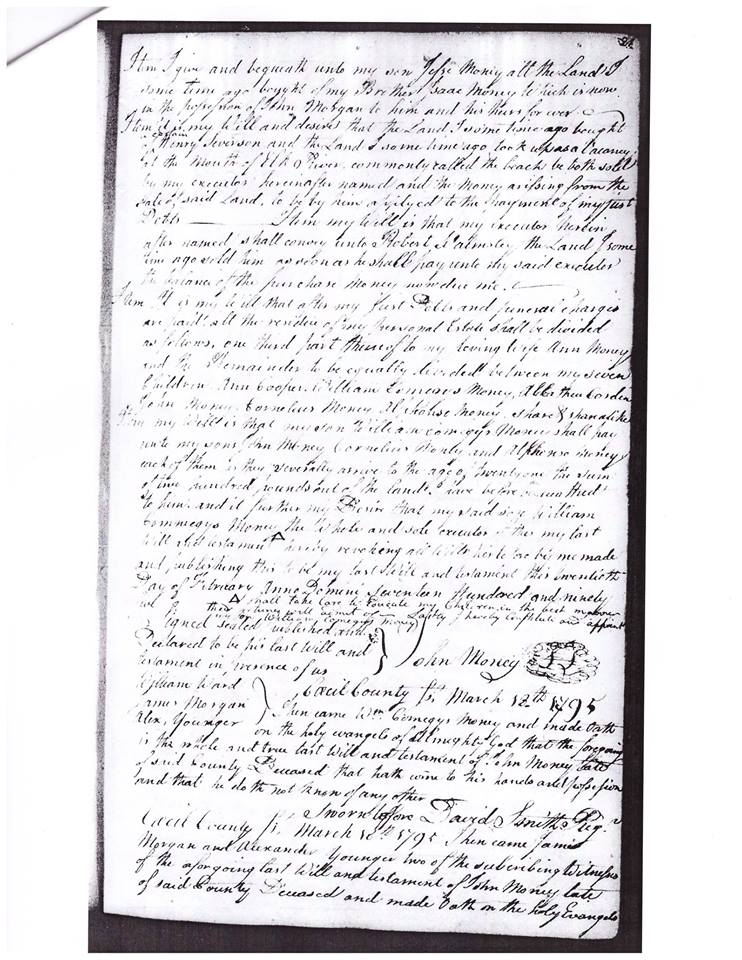 Item I give and bequeath unto my son Jesse Money all the Land I
some time ago bought of my Brother Isaac Money which is now
in the possession of John Morgan to him and his heirs for ever
Item it is my Will and desire that the Land I some time ago bought
of Captain Henry Severson and the Land I some time ago took up as a Vacancy
at the Mouth of Elk River commonly called the beach be both sold
by my executor hereinafter named and the Money arissing from the
sale of said Land to be by him applyed to the payment of my just
Debts Item my Will is that my executor herein
after named shall convey unto Robert Walmsley the Land I some
time ago sold him as soon as he shall pay unto my said executor
the balance of the purchase money now due me
Item It is my Will that after my Just Debts and funeral Charges
are paid all the residue of my personal Estate shall be divided
as follows, one third part thereof to my loving Wife Ann Money
and the Remainder to be equally divided between my seven
Children Ann Cooper, William Comegys Money,
John Money, Cornelius Money Alphonso Money, share & sharealike
Item my Will is that my son William Comegys Money shall pay
unto my sons John Money Cornelius Money and Alphonso Money
each of them as they severally arrive to the age of twenty one the sum
of two hundred pounds out of the lands I have before
to him and it further my Desire that my said son William
Commegys Money the Whole and sole executor of this my last
Will and testament hereby revoking all Wills heretofore by me made
and publishing this to be my last Will and testament this twentieth
Day of February Anno Domini Seventeen Hundred and ninety
shall take care to Educate my Children in the best manner
their fortunes will admit of Lastly I hereby constitute and appoint
my son William Comegys Money
Signed sealed published and
Declared to be his last Will and
testament in presence of us
John Money
William Ward
James Morgan
Alex. Younger
Cecil County March 12th 1795
Then came Wm Comegys Money and made Oath
on the holy evangels of Almighty God that the foregoing
is the whole and true last Will and testament of John Money late
of said County Deceased that hath come to his hands and possession
and that he doth not know of any other
Sworn before David Smith Regr
Cecil County March 12th 1795 Then came James
Morgan and Alexander Younger two of the subscribing Witnesses
of the aforgoing last Will and testament of John Money late
of said County Deceased and made Oath on the holy Evangels